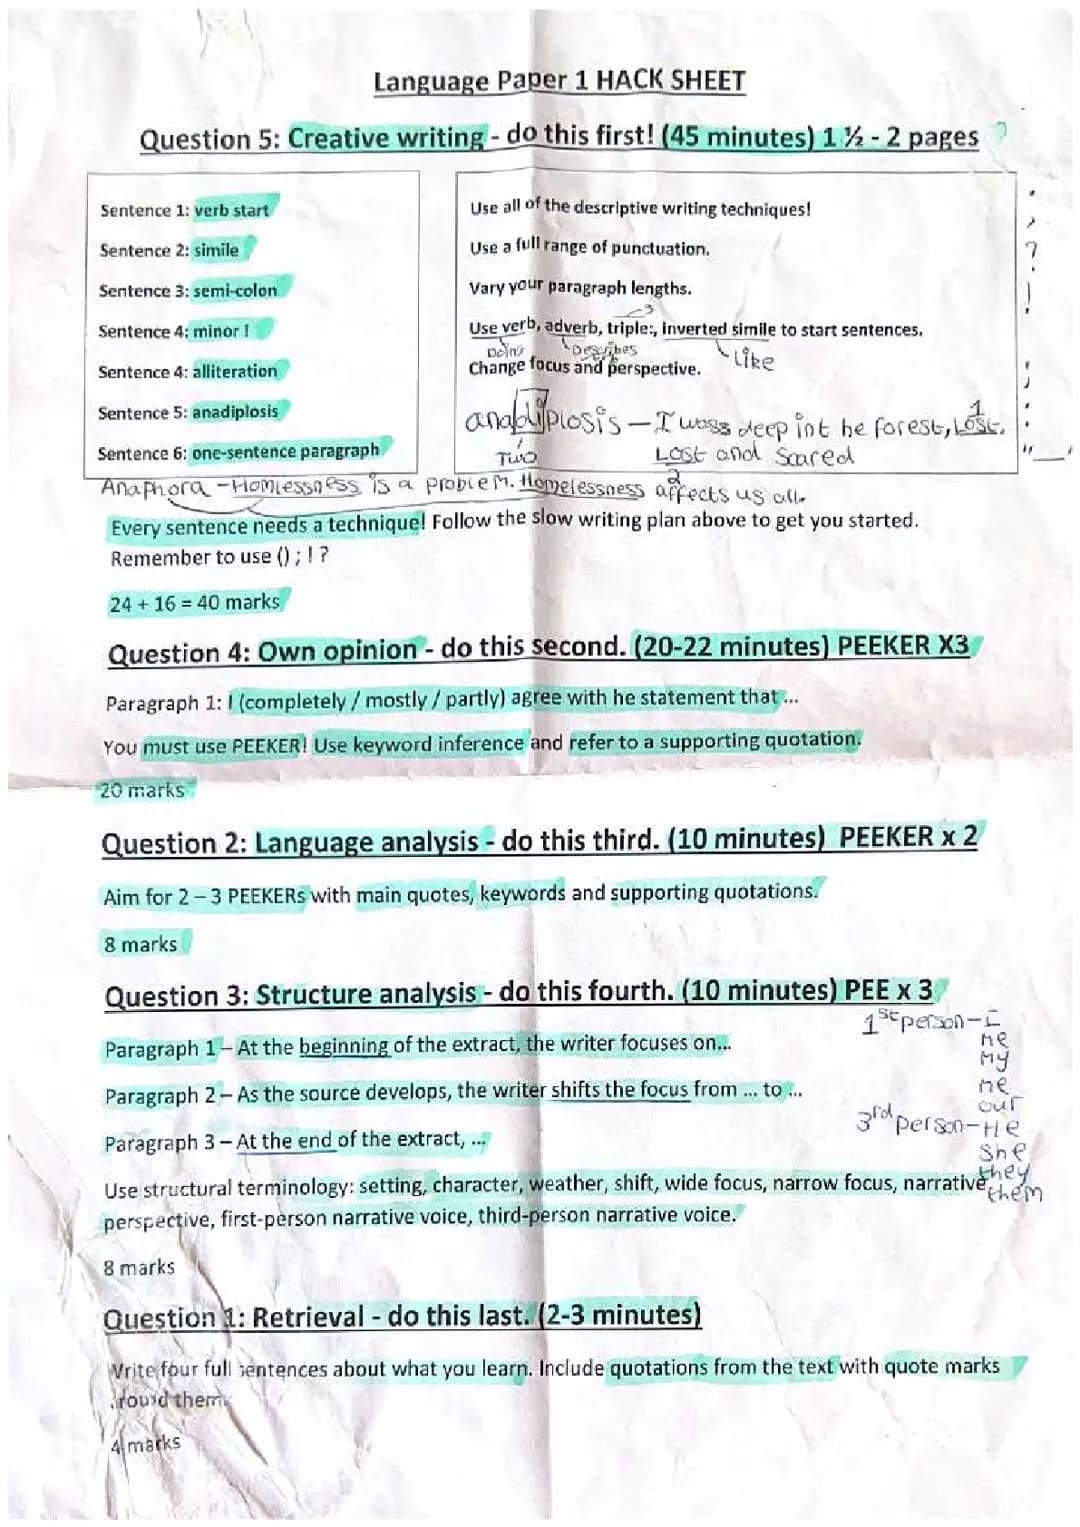 Language Paper 1 HACK SHEET
Question 5: Creative writing - do this first! (45 minutes) 1 ½ - 2 pages
?
Sentence 1: verb start
Sentence 2: simile
Sentence 3: semi-colon
Sentence 4: minor !
Sentence 4: alliteration
Sentence 5: anadiplosis
Sentence 6: one-sentence paragraph
Use all of the descriptive writing techniques!
Use a full range of punctuation.
Vary your paragraph lengths.
3
Use verb, adverb, triple:, inverted simile to start sentences.
Doing Describes Like
Change focus and perspective.
anadiplosis - I wass deep int he forest, Lost. 1
Two Lost and Scared
2
. , ? ! ; : " __ "
Anaphora - Homlessness is a problem. Homelessness affects us all.
Every sentence needs a technique! Follow the slow writing plan above to get you started.
Remember to use () ; ! ?
24 + 16 = 40 marks
Question 4: Own opinion - do this second. (20-22 minutes) PEEKER X3
Paragraph 1: I (completely / mostly / partly) agree with he statement that ...
You must use PEEKER! Use keyword inference and refer to a supporting quotation.
20 marks
Question 2: Language analysis - do this third. (10 minutes) PEEKER x 2
Aim for 2 – 3 PEEKERs with main quotes, keywords and supporting quotations.
8 marks
Question 3: Structure analysis - do this fourth. (10 minutes) PEE x 3
Paragraph 1 – At the beginning of the extract, the writer focuses on...
Paragraph 2 – As the source develops, the writer shifts the focus from ... to ...
Paragraph 3 – At the end of the extract, ...
1st person - I
me
my
me
our
3rd person - He
She
they
them
Use structural terminology: setting, character, weather, shift, wide focus, narrow focus, narrative
perspective, first-person narrative voice, third-person narrative voice.
8 marks
Question 1: Retrieval - do this last. (2-3 minutes)
Write four full sentences about what you learn. Include quotations from the text with quote marks
around them.
4 marks